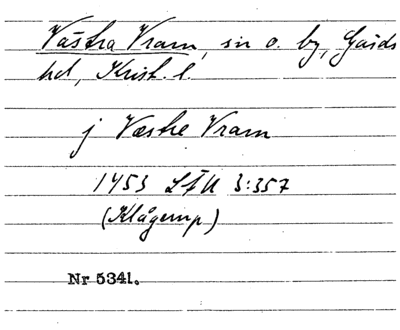 Västra Vram, sn o. by, Gärds
hd, Krist. l.
j Væstre Vram
1453 LÅU 3:357
(Klågemp.)
Nr 5341.